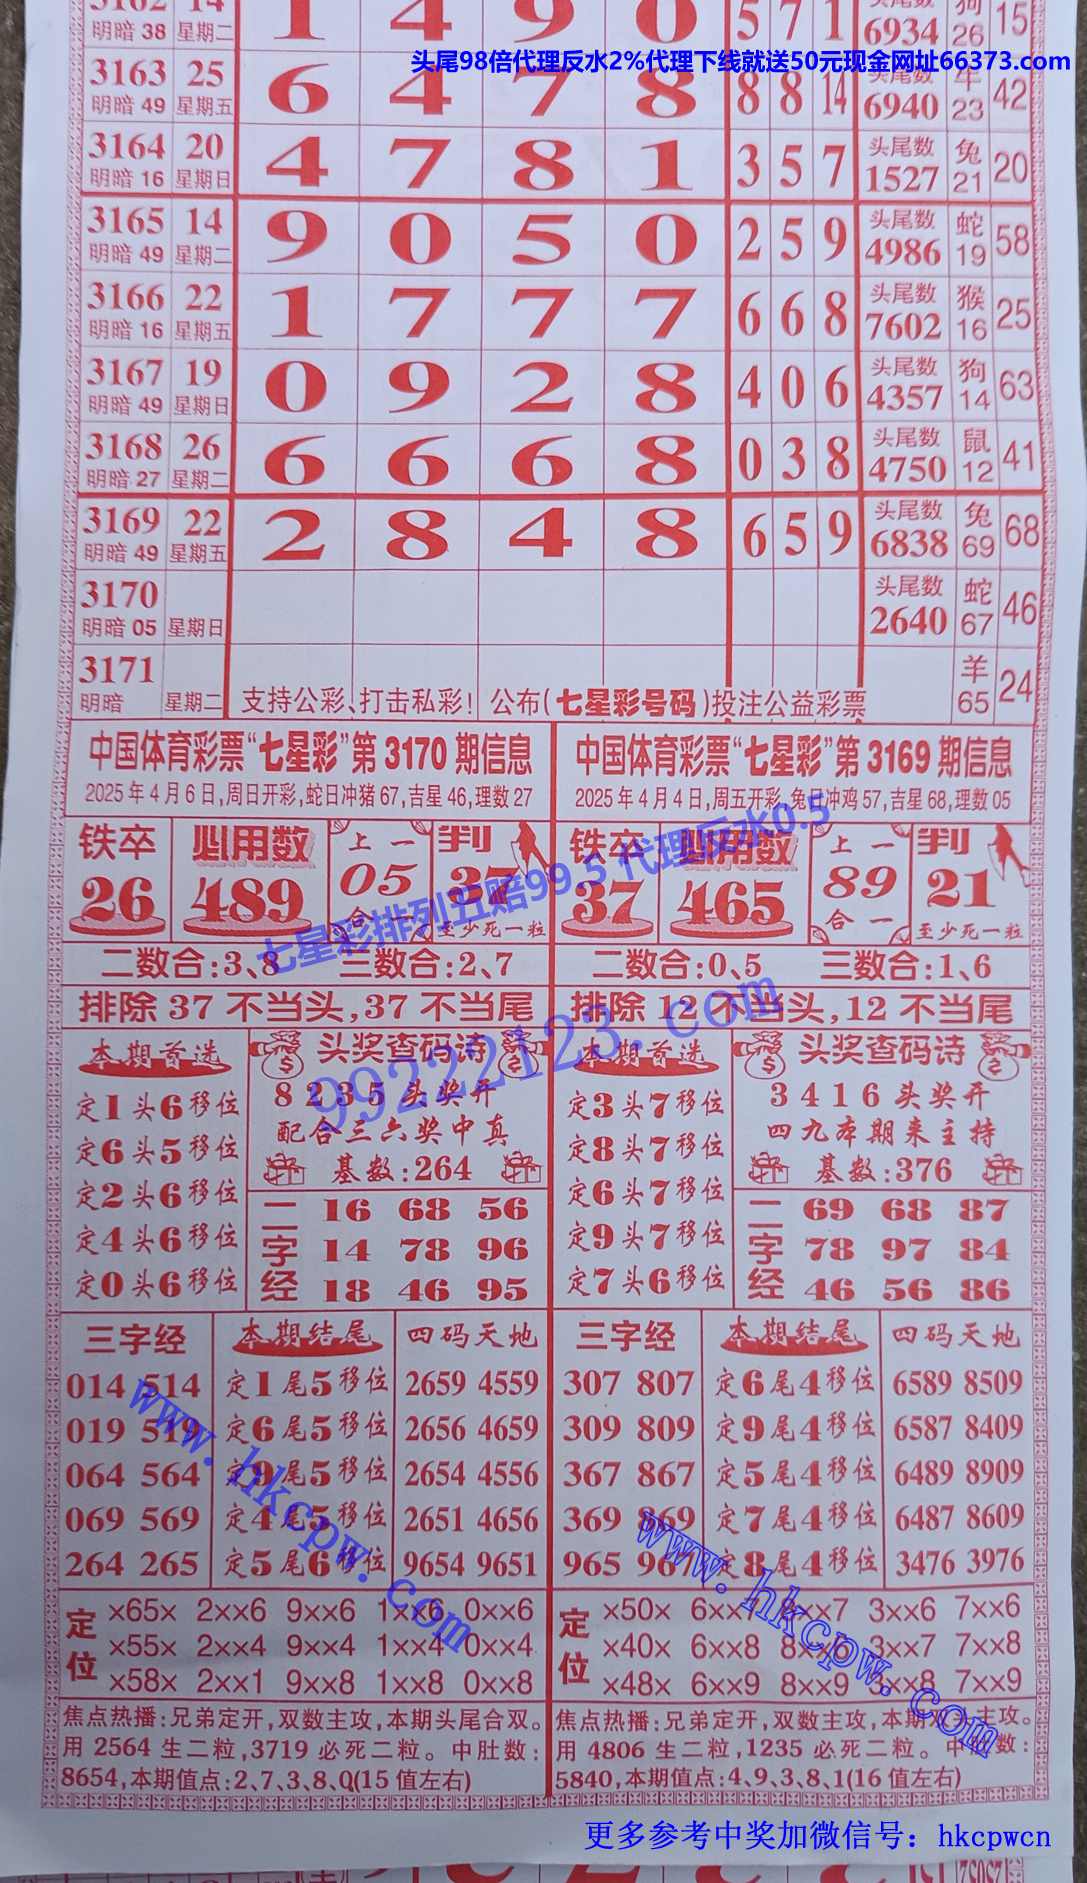 3162 14 1 4 9 0 5 7 1 头尾数 狗 15
明暗 38 星期二 6934 26
头尾98倍代理反水2%代理下线就送50元现金网址66373.com
3163 25 6 4 7 8 8 8 14 头尾数 牛 42
明暗 49 星期五 6940 23
3164 20 4 7 8 1 3 5 7 头尾数 兔 20
明暗 16 星期日 1527 21
3165 14 9 0 5 0 2 5 9 头尾数 蛇 58
明暗 49 星期二 4986 19
3166 22 1 7 7 7 6 6 8 头尾数 猴 25
明暗 16 星期五 7602 16
3167 19 0 9 2 8 4 0 6 头尾数 狗 63
明暗 49 星期日 4357 14
3168 26 6 6 6 8 0 3 8 头尾数 鼠 41
明暗 27 星期二 4750 12
3169 22 2 8 4 8 6 5 9 头尾数 兔 68
明暗 49 星期五 6838 69
3170 头尾数 蛇 46
明暗 05 星期日 2640 67
3171 羊 24
明暗 星期二 支持公彩、打击私彩! 公布(七星彩号码)投注公益彩票 65
中国体育彩票“七星彩”第 3170 期信息
2025年4月6日,周日开彩,蛇日冲猪67,吉星46,理数27
铁卒 必用数 上一 判
26 489 05 37
合一 至少死一粒
二数合:3、8 三数合:2、7
排除 37 不当头,37 不当尾
本期首选 头奖查码诗
定1头6移位 8 2 3 5 头奖开
定6头5移位 配合三六奖中真
定2头6移位 基数:264
定4头6移位
定0头6移位
二字经
16 68 56
14 78 96
18 46 95
三字经 本期结尾 四码天地
014 514 定1尾5移位 2659 4559
019 519 定6尾5移位 2656 4659
064 564 定9尾5移位 2654 4556
069 569 定4尾5移位 2651 4656
264 265 定5尾6移位 9654 9651
定位
×65× 2××6 9××6 1××6 0××6
×55× 2××4 9××4 1××4 0××4
×58× 2××1 9××8 1××8 0××8
焦点热播:兄弟定开,双数主攻,本期头尾合双。
用 2564 生二粒,3719 必死二粒。中肚数:
8654,本期值点:2、7、3、8、0(15 值左右)
中国体育彩票“七星彩”第 3169 期信息
2025年4月4日,周五开彩,兔日冲鸡57,吉星68,理数05
铁卒 必用数 上一 判
37 465 89 21
合一 至少死一粒
二数合:0、5 三数合:1、6
排除 12 不当头,12 不当尾
本期首选 头奖查码诗
定3头7移位 3 4 1 6 头奖开
定8头7移位 四九本期来主持
定6头7移位 基数:376
定9头7移位
定7头6移位
二字经
69 68 87
78 97 84
46 56 86
三字经 本期结尾 四码天地
307 807 定6尾4移位 6589 8509
309 809 定9尾4移位 6587 8409
367 867 定5尾4移位 6489 8909
369 869 定7尾4移位 6487 8609
965 967 定8尾4移位 3476 3976
定位
×50× 6××7 8××7 3××6 7××6
×40× 6××8 8××6 3××7 7××8
×48× 6××9 8××9 3××8 7××9
焦点热播:兄弟定开,双数主攻,本期双主攻。
用 4806 生二粒,1235 必死二粒。中肚数:
5840,本期值点:4、9、3、8、1(16 值左右)
七星彩排列五赔99.5 代理反水0.5
99222123.com
www.hkcpw.com
www.hkcpw.com
更多参考中奖加微信号：hkcpwcn